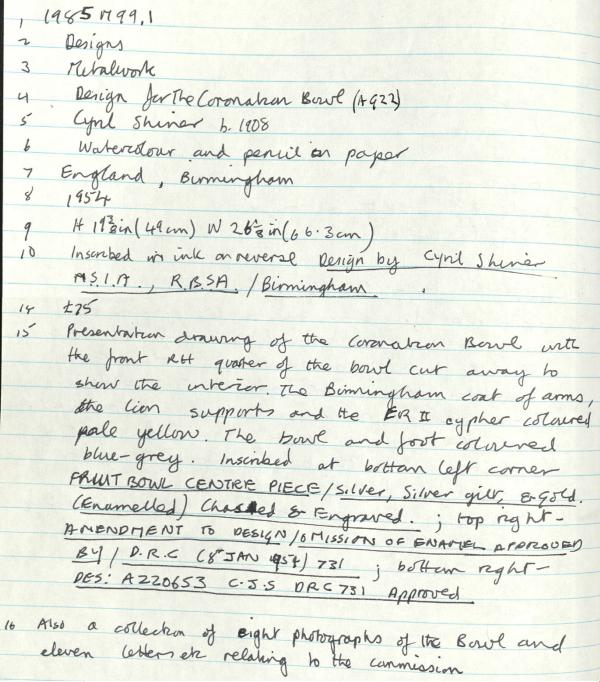 1 1985 M99.1
2 Designs
3 Metalwork
4 Design for The Coronation Bowl (AG22)
5 Cyril Shiner b. 1908
6 Watercolour and pencil on paper
7 England, Birmingham
8 1954
9 H 19 in (49cm) W 26 in (66.3cm)
10 Inscribed in ink on reverse Design by Cyril Shiner
A.S.I.A., R.B.S.A. / Birmingham.
14 £25
15 Presentation drawing of the Coronation Bowl with
the front RH quarter of the bowl cut away to
show the interior. The Birmingham coat of arms,
the lion supports and the ER II cypher coloured
pale yellow. The bowl and foot coloured
blue-grey. Inscribed at bottom left corner
FRUIT BOWL CENTRE PIECE / Silver, Silver gilt, & Gold.
(Enamelled) Chased & Engraved. ; top right-
AMENDMENT TO DESIGN / OMISSION OF ENAMEL APPROVED
BY / D.R.C (8 JAN 1954) 731 ; bottom right-
DES: A220653 C.J.S DRC 731 Approved
16 Also a collection of eight photographs of the Bowl and
eleven letters etc relating to the commission